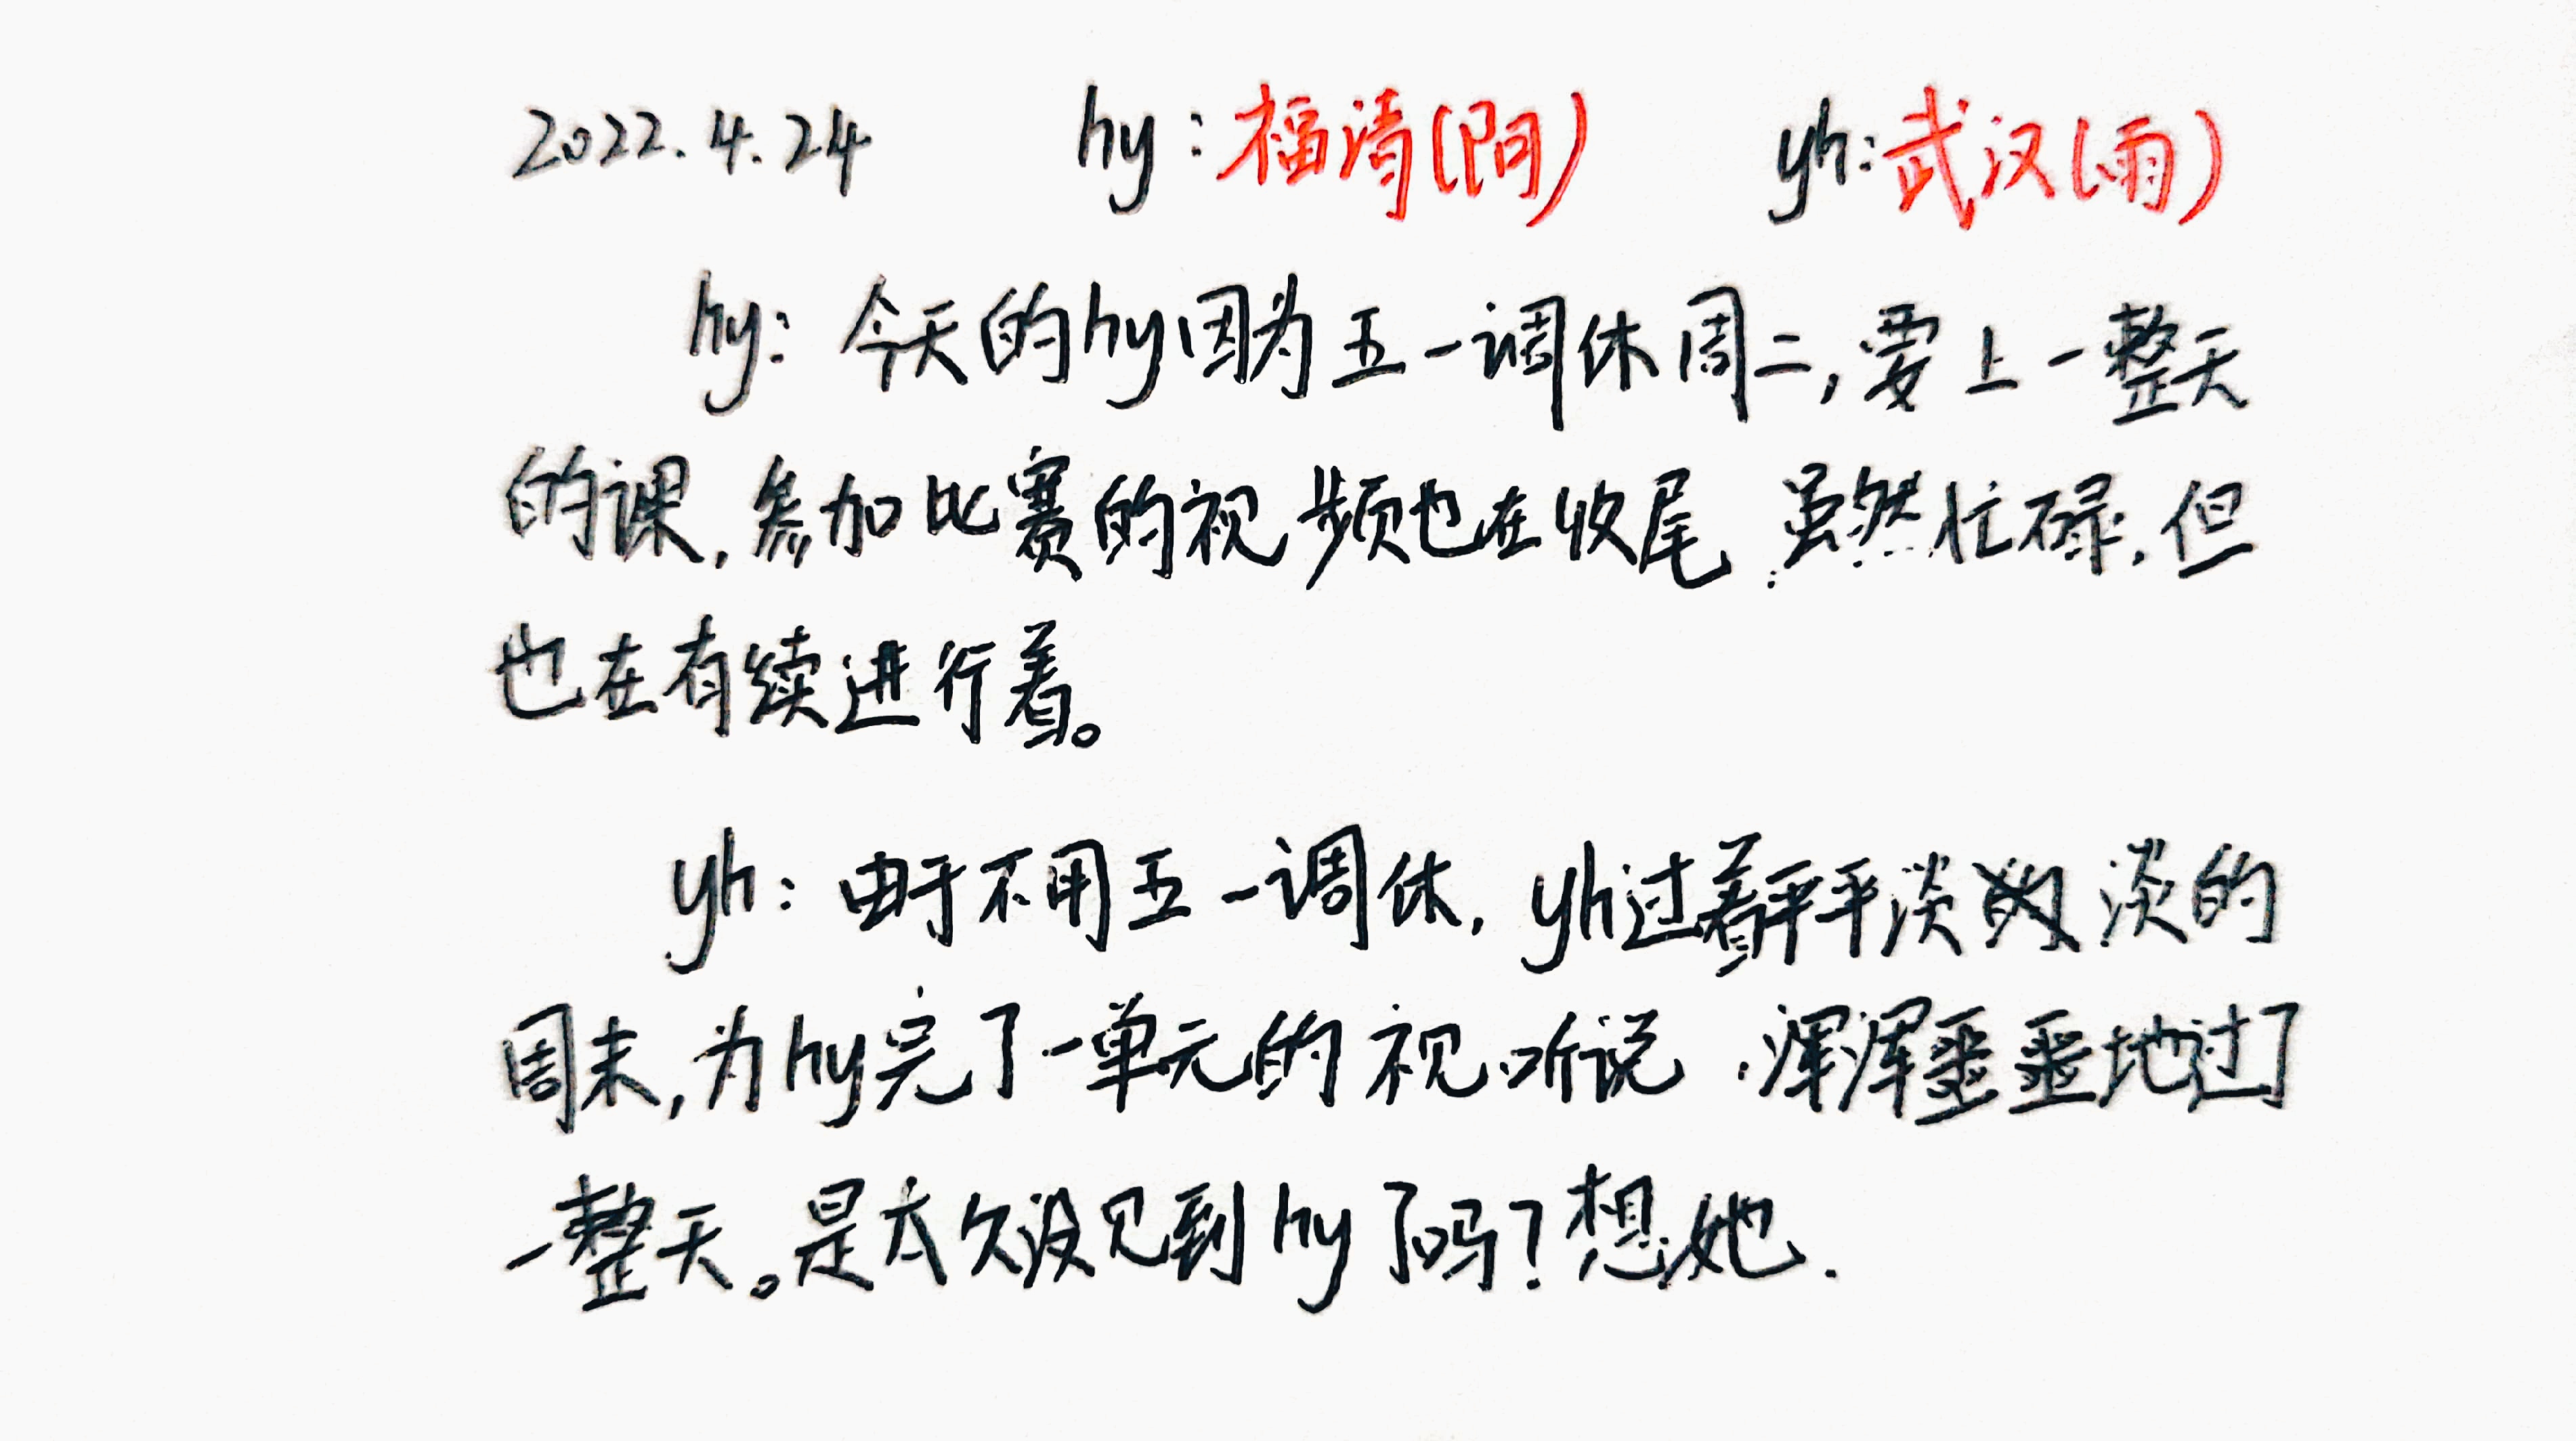 2022.4.24 hy:福清(阴) yh:武汉(雨)
hy: 今天的hy因为五一调休周二,要上一整天
的课,参加比赛的视频也在收尾.虽然忙碌,但
也在有续进行着。
yh: 由于不用五一调休,yh过着平平淡淡的
周末,为hy完了一单元的视听说,浑浑噩噩地过了
一整天。是太久没见到hy了吗?想她.